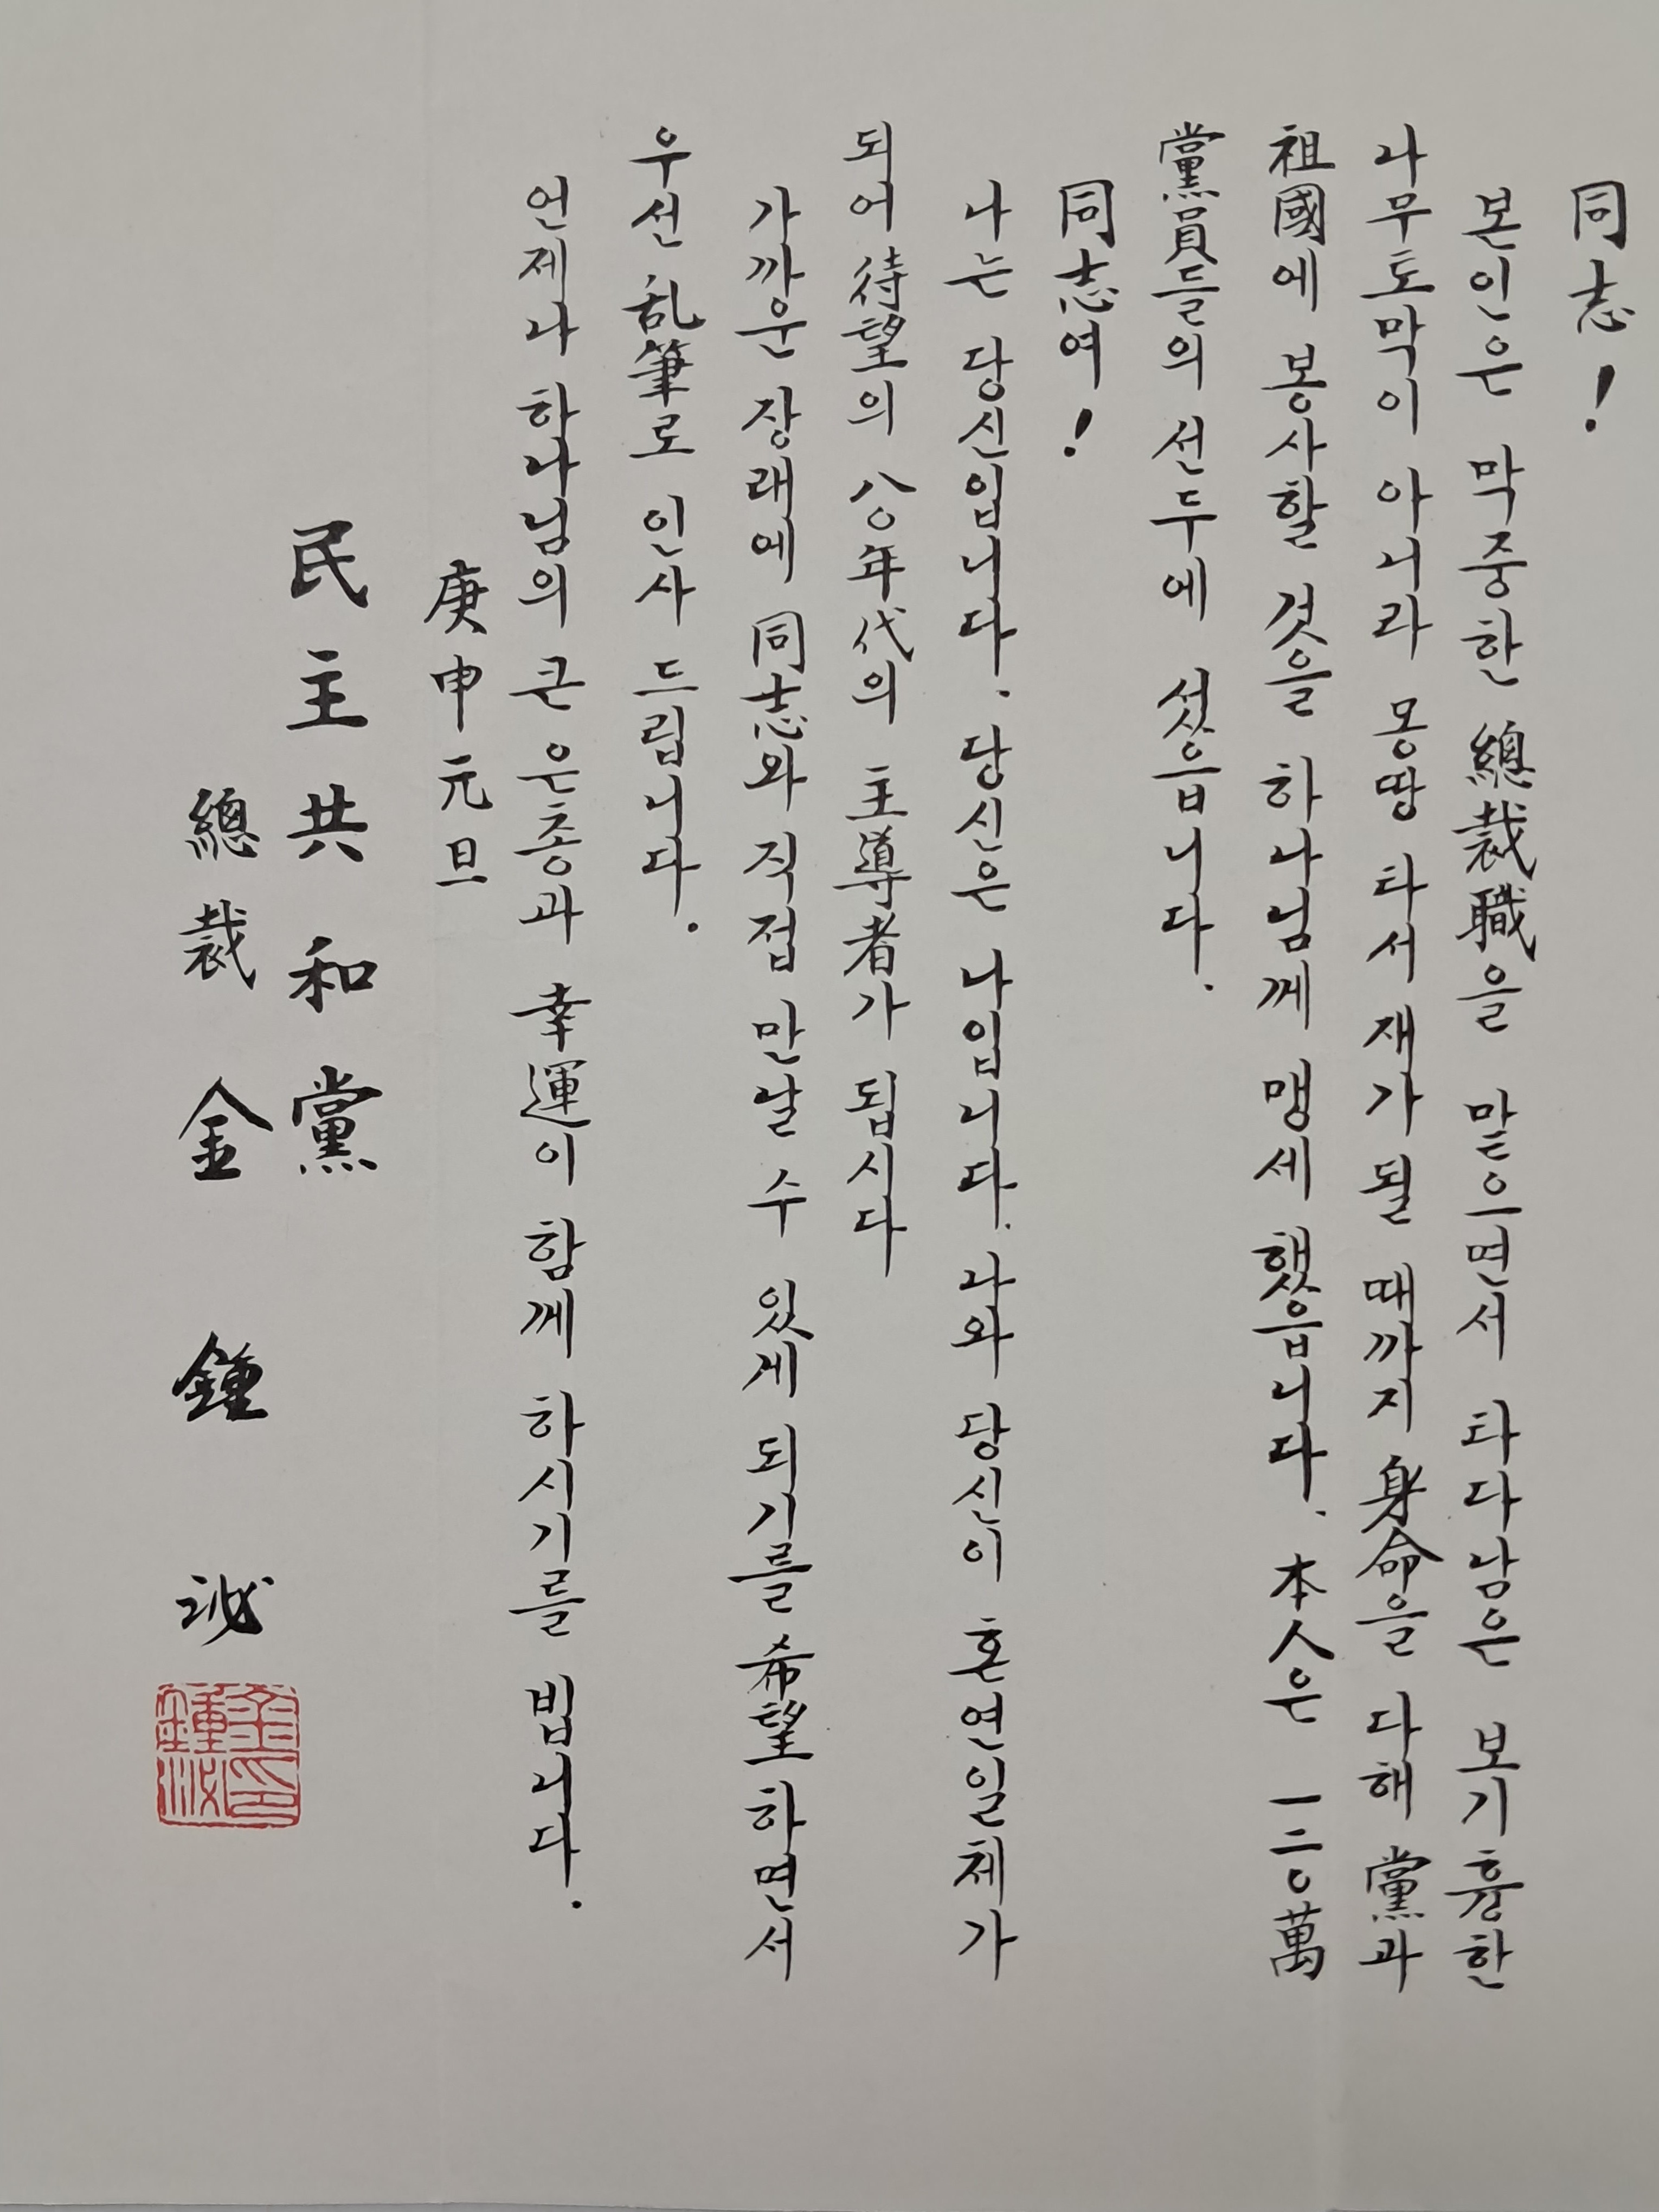 同志!
본인은 막중한 總裁職을 맡으면서 타다남은 보기흉한
나무토막이 아니라 몽땅 타서 재가 될 때까지 身命을 다해 黨과
祖國에 봉사할 것을 하나님께 맹세했읍니다. 本人은 一二○萬
黨員들의 선두에 섰읍니다.
同志여!
나는 당신입니다. 당신은 나입니다. 나와 당신이 혼연일체가
되어 待望의 八○年代의 主導者가 됩시다
가까운 장래에 同志와 직접 만날 수 있게 되기를 希望하면서
우선 乱筆로 인사 드립니다.
언제나 하나님의 큰 은총과 幸運이 함께 하시기를 빕니다.
庚申元旦
民主共和黨
總裁 金鍾泌
金鍾泌印